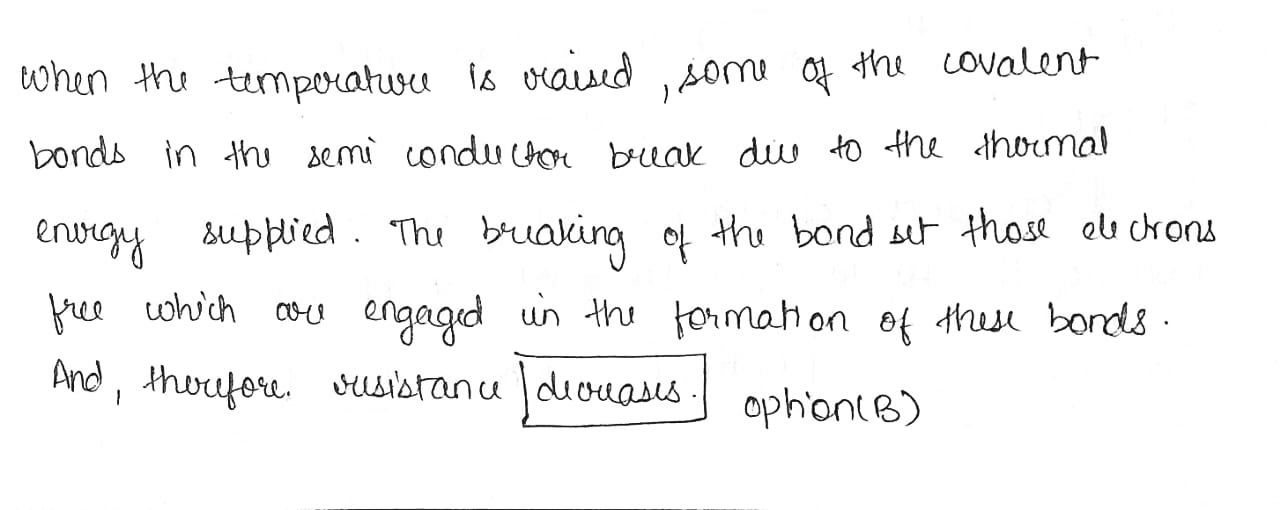 When the temperature is raised, some of the covalent
bonds in the semi conductor break due to the thermal
energy supplied. The breaking of the bond set those electrons
free which are engaged in the formation of these bonds.
And, therefore. resistance decreases. option(B)